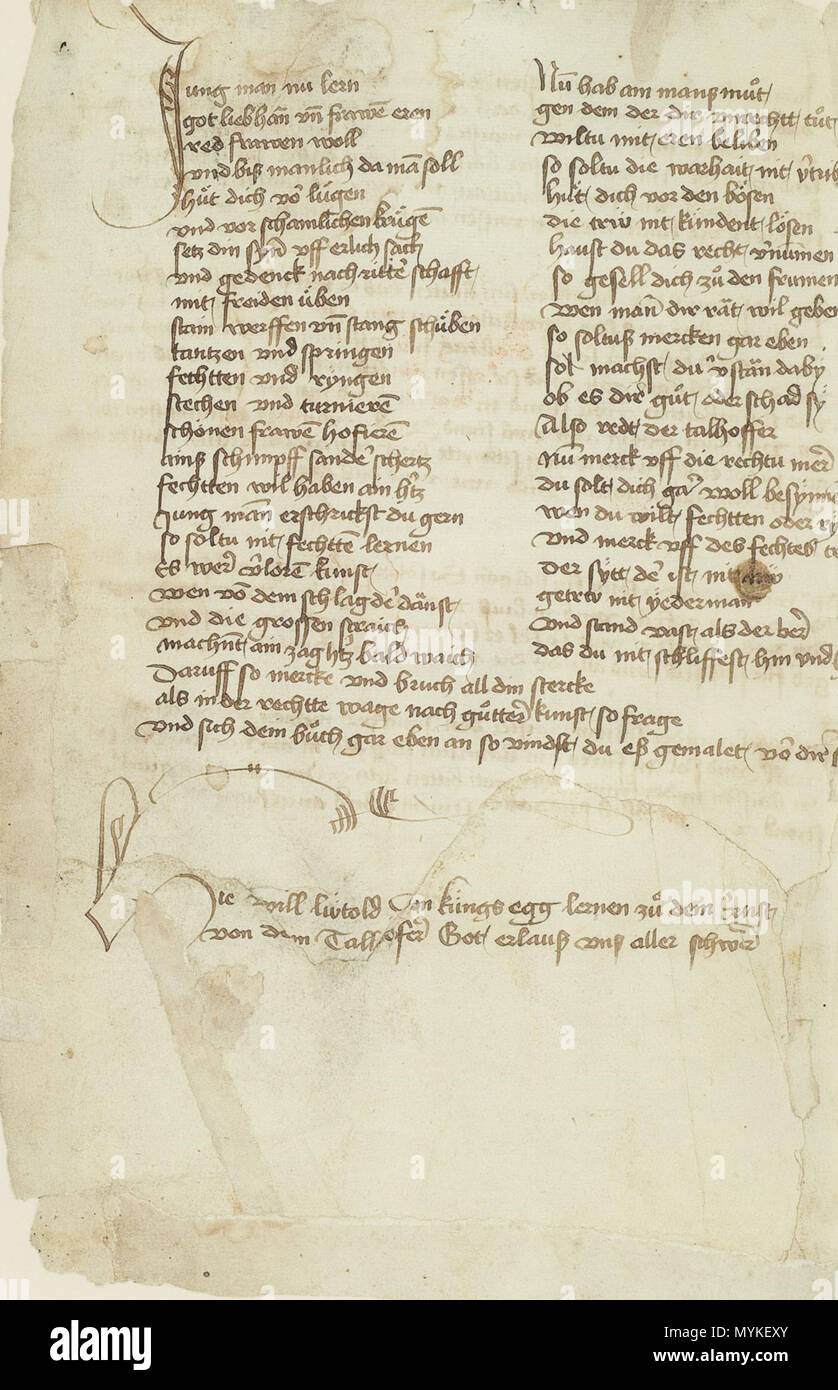 Jung man nu lern
got liebhān vn̄ frawē eren
red frawen woll
vnd biß manlich da mā soll
hůt dich vō lu̇gen
vnd vor schamlichen kru̇gē
setz din syn̄ vff erlich sach
vnd gedenck nach ritterschafft
mit freiden u̇ben
stain werffen vn̄ stang schu̇ben
tantzen vnd springen
fechtten vnd ryngen
stechen vnd turnierē
schönen frawē hofierē
ainß schimpff sander schertz
fechtten wil haben ain h'tz
Jung man̄ erschrickst du gern
so soltu nit fechttē lernen
Es wer v'lorē kunst
wen vō dem schlag der dänst
vnd die grossen straich
machnt ain zag h'tz bald waich
Daruff so mercke vnd bruch all din stercke
als in der rechtte wage nach gůtter kunst so frage
vnd sich dein bůch gar eben an so vindst du eß gemalet vō dir
Nū hab ain manß můt
gen dem der dir vnrechtt tůt
wiltu mit eren beliben
so soltu die warhait nit v'trib
hůt dich vor den bösen
die trw nit kündent lösen
haust du das recht v'numen
so gesell dich zů den frumen
wen man̄ dir rät wil geben
so soltuß mercken gar eben
sol machst du v'stän daby
ob es dir gůt oder schad sy
Also redt der talhoffer
Nun merck vff die rechtu mer
du solt dich gar woll besynne
wen du wilt fechtten oder ry
vnd merck vff des fechters
Der sytt der ist nit
getrw nit yederman
vnd stand vast als der ber
das du nit schliffest hin vnd
Hie will lu̇told von kůngs egg lernen zů dem ernst
von dem Talhofer Got erlauß vnß aller schwer
alamy
Image ID: MYKEXY
www.alamy.com